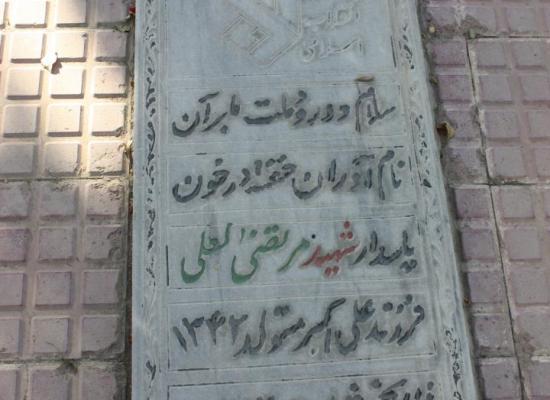 انقلاب
اسلامی
سلام و درود ملت ما بر آن
نام آوران خفته در خون
پاسدار شهید مرتضی لعلی
فرزند علی اکبر متولد ۱۳۴۲